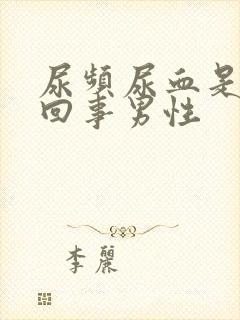 尿頻尿血是
回事男性
李麗